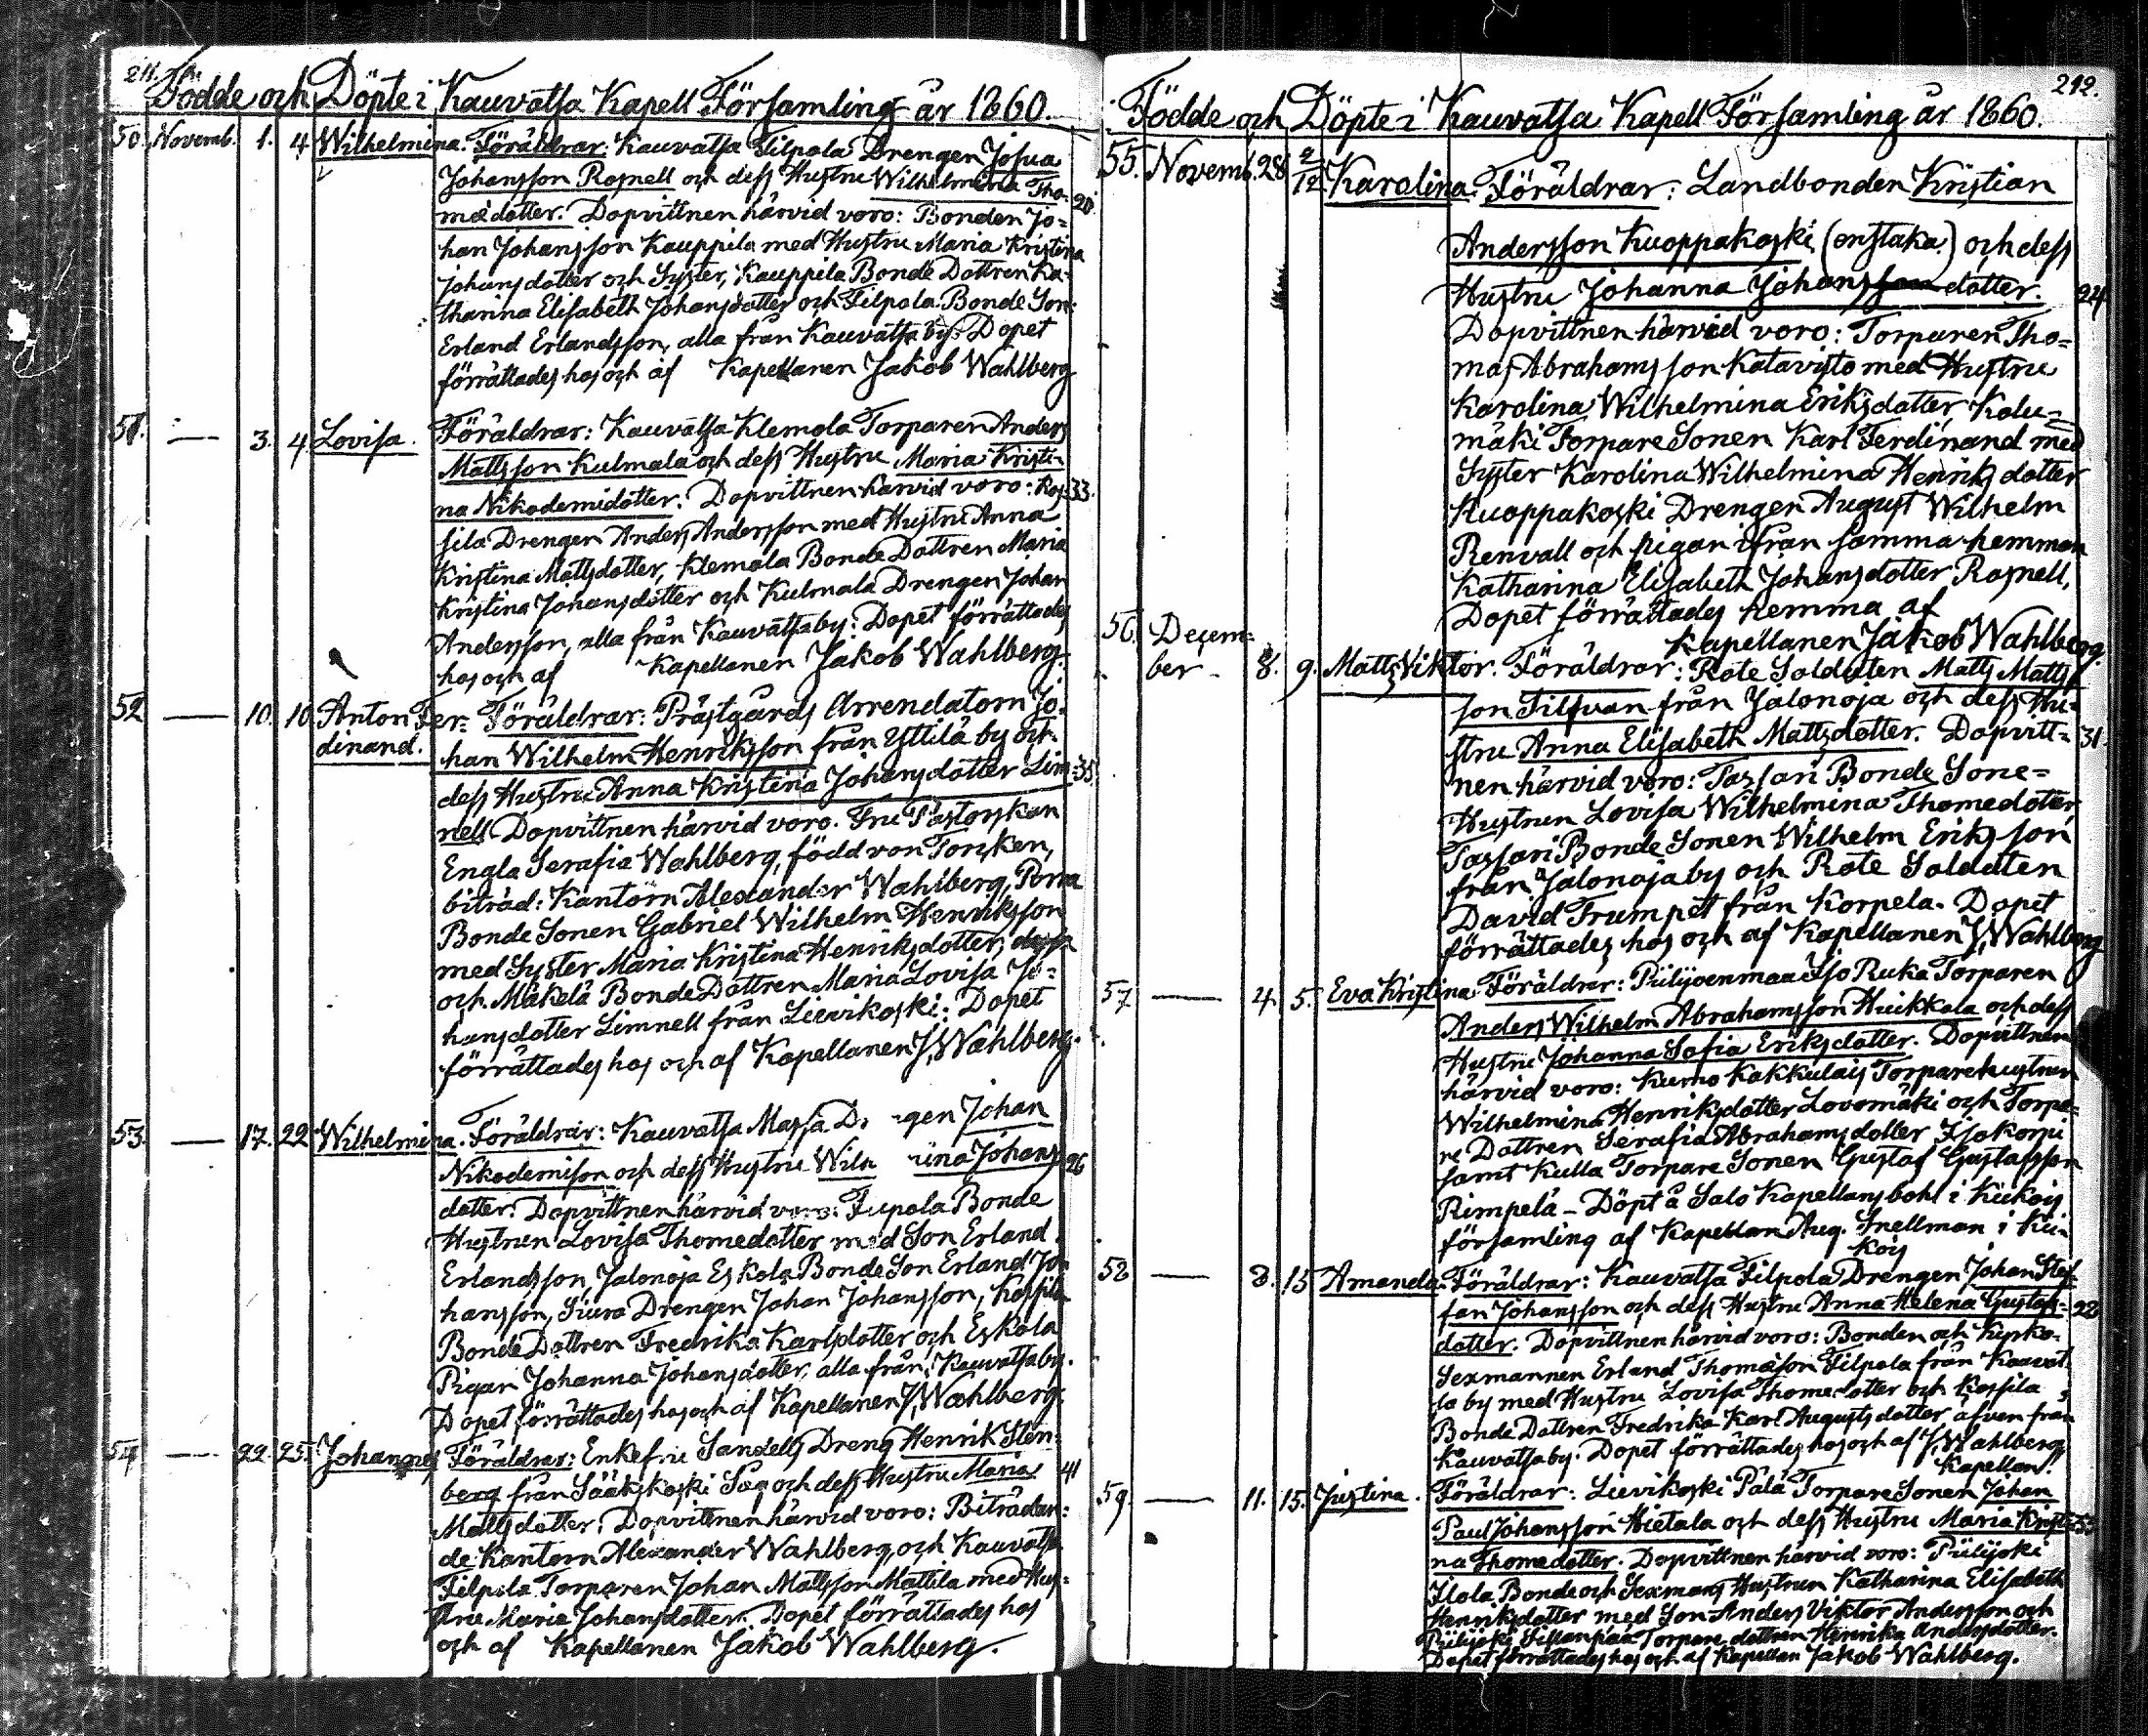 211.
Födde och Döpte i Kauvatsa Kapell Församling år 1860.
50. Novemb. 1. 4 Wilhelmina. Föräldrar: Kauvatsa Filpola Drengen Josua
Johansson Rosnell och dess Hustru Wilhelmina Tho-
mædotter. Dopvittnen härvid voro: Bonden Jo= 20.
han Johansson Kauppila med Hustru Maria Kristina
Johansdotter och Syster, Kauppila Bonde Dottren Ka-
tharina Elisabeth Johansdotter och Filpola Bonde Son:
Erland Erlandsson, alla från Kauvatsa by. Dopet
förrättades hos och af Kapellanen Jakob Wahlberg
51. — 3. 4. Lovisa. Föräldrar: Kauvatsa Klemola Torparen Anders
Mattsson Kulmala och dess Hustru Maria Kristi-
na Nikodemidotter. Dopvittnen härvid voro: Kos- 33.
sila Drengen Anders Andersson med Hustru Anna
Kristina Mattsdotter, Klemola Bonde Dottren Maria
Kristina Johansdotter och Kulmala Drengen Johan
Andersson, alla från Kauvatsa by. Dopet förrättades
hos och af Kapellanen Jakob Wahlberg.
52 — 10. 10. Anton Fer= Föräldrar: Prästgårds Arrendatorn Jo-
dinand. han Wilhelm Henriksson från Yttilä by och
dess Hustru Anna Kristina Johansdotter Lim- 35.
nell. Dopvittnen härvid voro. Fru Pastorskan
Engla Serafia Wahlberg, född von Torcken,
biträd: Kantorn Alexander Wahlberg, Porra
Bonde Sonen Gabriel Wilhelm Henriksson
med Syster Maria Kristina Henriksdotter,
och Mäkelä Bonde Dottren Maria Lovisa Jo=
hansdotter Limnell från Lievikoski. Dopet
förrättades hos och af Kapellanen J. Wahlberg.
53. — 17. 22 Wilhelmina. Föräldrar: Kauvatsa Massa D gen Johan
Nikodemison och dess Hustru Wilh ina Johans 26
dotter. Dopvittnen härvid voro: Bonde
Hustrun Lovisa Thomedotter med Son Erland
Erlandsson, Jalonoja Eskola Bonde Son Erland Jo-
hansson, Siura Drengen Johan Johansson, Kossila
Bonde Dottren Fredrika Karlsdotter och Eskola
Pigan Johanna Johansdotter, alla från Kauvatsa by.
Dopet förrättades hos och af Kapellanen J. Wahlberg.
54 — 22. 25. Johannes Föräldrar: Enkefru Sandells Dreng Henrik Sten-
berg från Sääkskoski Såg och dess Hustru Maria 41
Mattsdotter. Dopvittnen härvid voro: Biträdan:
de Kantorn Alexander Wahlberg, och Kauvatsa
Filpola Torparen Johan Mattsson Mattila med Hus=
tru Maria Johansdotter. Dopet förrättades hos
och af Kapellanen Jakob Wahlberg.
212.
Födde och Döpte i Kauvatsa Kapell Församling år 1860.
55. Novemb. 28 2/12 Karolina. Föräldrar: Landbonden Kristian
Andersson Kuoppakoski (enstaka) och dess
Hustru Johanna Johansdotter. 24
Dopvittnen härvid voro: Torparen Tho=
mas Abrahamsson Katavisto med Hustru
Karolina Wilhelmina Eriksdotter, Kalu=
mäki Torpare Sonen Karl Ferdinand med
Syster Karolina Wilhelmina Henriksdotter
Kuoppakoski Drengen August Wilhelm
Renvall och pigan ifrån samma hemman
Katharina Elisabeth Johansdotter Rosnell,
Dopet förrättades hemma af
Kapellanen Jakob Wahlberg.
56. Decem-
ber - 8. 9. Matts Viktor. Föräldrar: Rote Soldaten Matts Matts
son Tilfvan från Jalonoja och dess Hu-
stru Anna Elisabeth Mattsdotter. Dopvitt- 31.
nen härvid voro: Tassari Bonde Sone=
Hustrun Lovisa Wilhelmina Thomedotter,
Tassari Bonde Sonen Wilhelm Eriksson
från Jalonoja by och Rote Soldaten
David Trumpet från Korpela. Dopet
förrättades hos och af Kapellanen J. Wahlberg
57 — 4. 5. Eva Kristina. Föräldrar: Piilijoenmaa Iso Ruka Torparen
Anders Wilhelm Abrahamsson Huikkala och dess
Hustru Johanna Sofia Eriksdotter. Dopvittnen
härvid voro: Kumo Kakkulais Torparehustrun
Wilhelmina Henriksdotter Lovomäki och Torpa=
re Dottren Serafia Abrahamsdotter Isokorpi
samt Kulla Torpare Sonen Gustaf Gustafsson
Rimpelä - Döpt å Salo Kapellansbohl i Kiikois
församling af Kapellan Aug. Snellman i Kii-
kois
58 — 8. 15 Amanda. Föräldrar: Kauvatsa Filpola Drengen Johan Stef-
fan Johansson och dess Hustru Anna Helena Gustafs- 28
dotter. Dopvittnen härvid voro: Bonden och Kyrko-
Sexmannen Erland Thomæson Filpola från Kauvat-
sa by med Hustru Lovisa Thomedotter och Kossila
Bonde Dottren Fredrika Karl Augustsdotter äfven från
Kauvatsa by. Dopet förrättades hos och af J. Wahlberg
Kapellan.
59. — 11. 15. Justina. Föräldrar: Lievikoski Pälä Torpare Sonen Johan
Paul Johansson Hietala och dess Hustru Maria Kristi-
na Thomedotter. Dopvittnen härvid voro: Piilijoki
Ilola Bonde och Sexmans Hustrun Katharina Elisabeth
Henriksdotter med Son Anders Viktor Andersson och
Piilijoki Sillanpää Torpare dottren Henrika Andersdotter.
Dopet förrättades hos och af Kapellan Jakob Wahlberg.